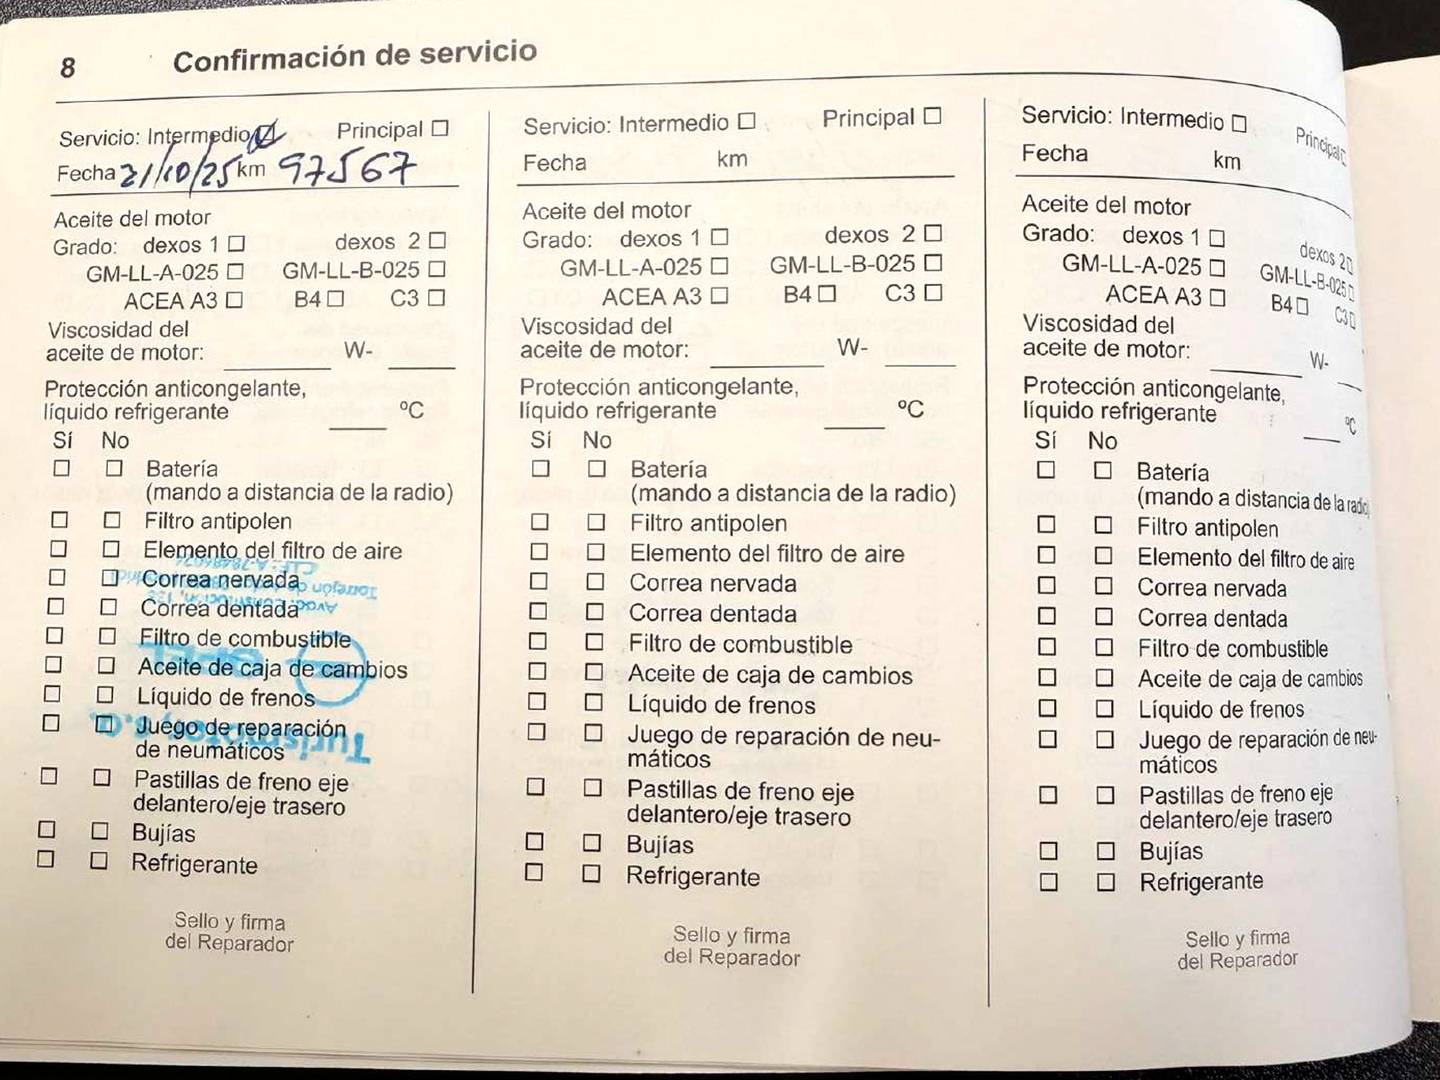 8 Confirmación de servicio
Servicio: Intermedio ☑ Principal ☐
Fecha 21/10/25 km 97567
Aceite del motor
Grado: dexos 1 ☐ dexos 2 ☐
GM-LL-A-025 ☐ GM-LL-B-025 ☐
ACEA A3 ☐ B4 ☐ C3 ☐
Viscosidad del
aceite de motor: ____ W- ____
Protección anticongelante,
líquido refrigerante ____ ºC
Sí No
☐ ☐ Batería
(mando a distancia de la radio)
☐ ☐ Filtro antipolen
☐ ☐ Elemento del filtro de aire
☐ ☐ Correa nervada
☐ ☐ Correa dentada
☐ ☐ Filtro de combustible
☐ ☐ Aceite de caja de cambios
☐ ☐ Líquido de frenos
☐ ☐ Juego de reparación
de neumáticos
☐ ☐ Pastillas de freno eje
delantero/eje trasero
☐ ☐ Bujías
☐ ☐ Refrigerante
Turismotor, s.a.
OPEL
Avda. Constitución,
Torrejón de
Sello y firma
del Reparador
Servicio: Intermedio ☐ Principal ☐
Fecha km
Aceite del motor
Grado: dexos 1 ☐ dexos 2 ☐
GM-LL-A-025 ☐ GM-LL-B-025 ☐
ACEA A3 ☐ B4 ☐ C3 ☐
Viscosidad del
aceite de motor: ____ W- ____
Protección anticongelante,
líquido refrigerante ____ ºC
Sí No
☐ ☐ Batería
(mando a distancia de la radio)
☐ ☐ Filtro antipolen
☐ ☐ Elemento del filtro de aire
☐ ☐ Correa nervada
☐ ☐ Correa dentada
☐ ☐ Filtro de combustible
☐ ☐ Aceite de caja de cambios
☐ ☐ Líquido de frenos
☐ ☐ Juego de reparación de neu-
máticos
☐ ☐ Pastillas de freno eje
delantero/eje trasero
☐ ☐ Bujías
☐ ☐ Refrigerante
Sello y firma
del Reparador
Servicio: Intermedio ☐ Principal ☐
Fecha km
Aceite del motor
Grado: dexos 1 ☐ dexos 2 ☐
GM-LL-A-025 ☐ GM-LL-B-025 ☐
ACEA A3 ☐ B4 ☐ C3 ☐
Viscosidad del
aceite de motor: ____ W- ____
Protección anticongelante,
líquido refrigerante ____ ºC
Sí No
☐ ☐ Batería
(mando a distancia de la radio)
☐ ☐ Filtro antipolen
☐ ☐ Elemento del filtro de aire
☐ ☐ Correa nervada
☐ ☐ Correa dentada
☐ ☐ Filtro de combustible
☐ ☐ Aceite de caja de cambios
☐ ☐ Líquido de frenos
☐ ☐ Juego de reparación de neu-
máticos
☐ ☐ Pastillas de freno eje
delantero/eje trasero
☐ ☐ Bujías
☐ ☐ Refrigerante
Sello y firma
del Reparador